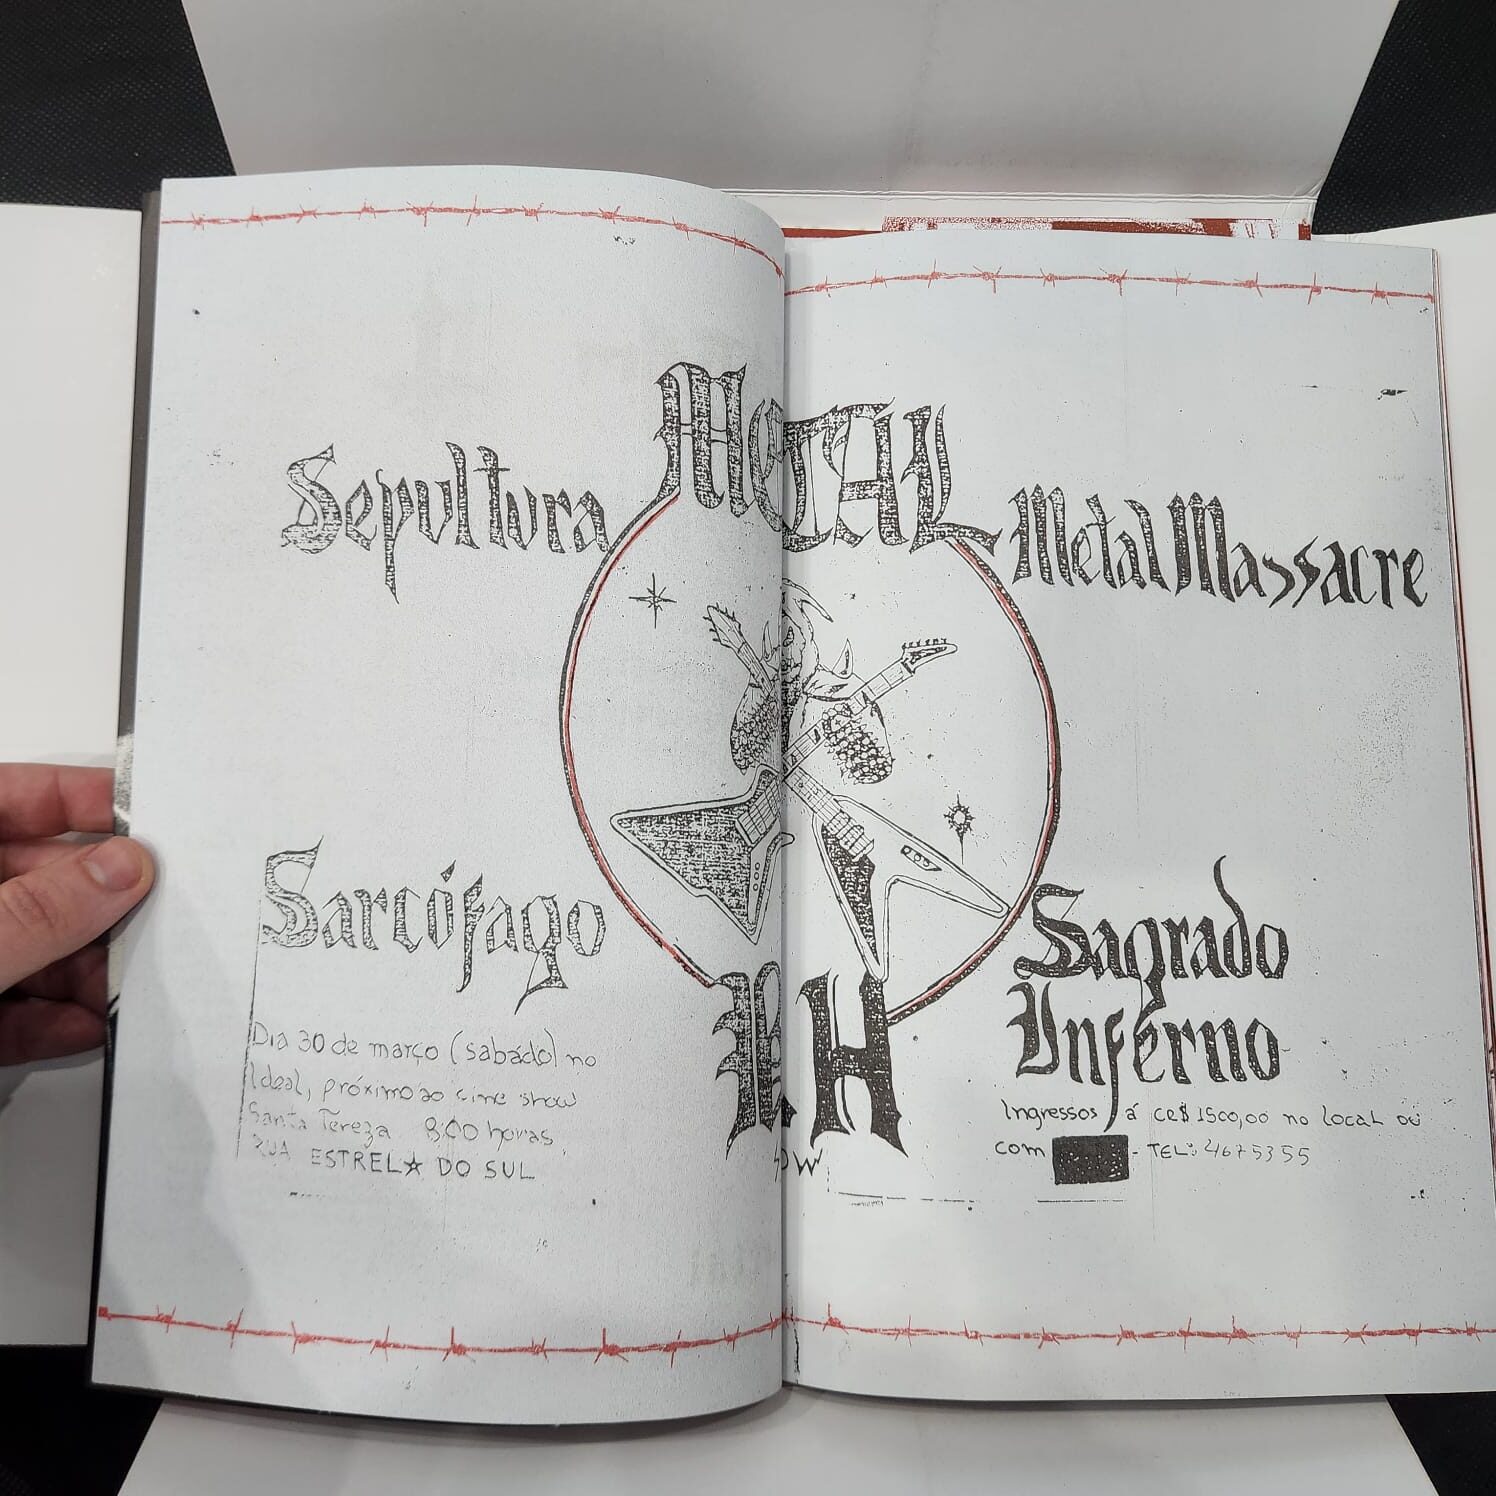 Metal
Sepultura
Metal Massacre
Sarcófago
Sagrado
Inferno
BH
Dia 30 de março (sabádo) no
Ideal, próximo ao cine show
Santa Tereza 8:00 horas
RUA ESTREL★ DO SUL
Ingressos á CR$ 1500,00 no local ou
com - TEL: 4675355